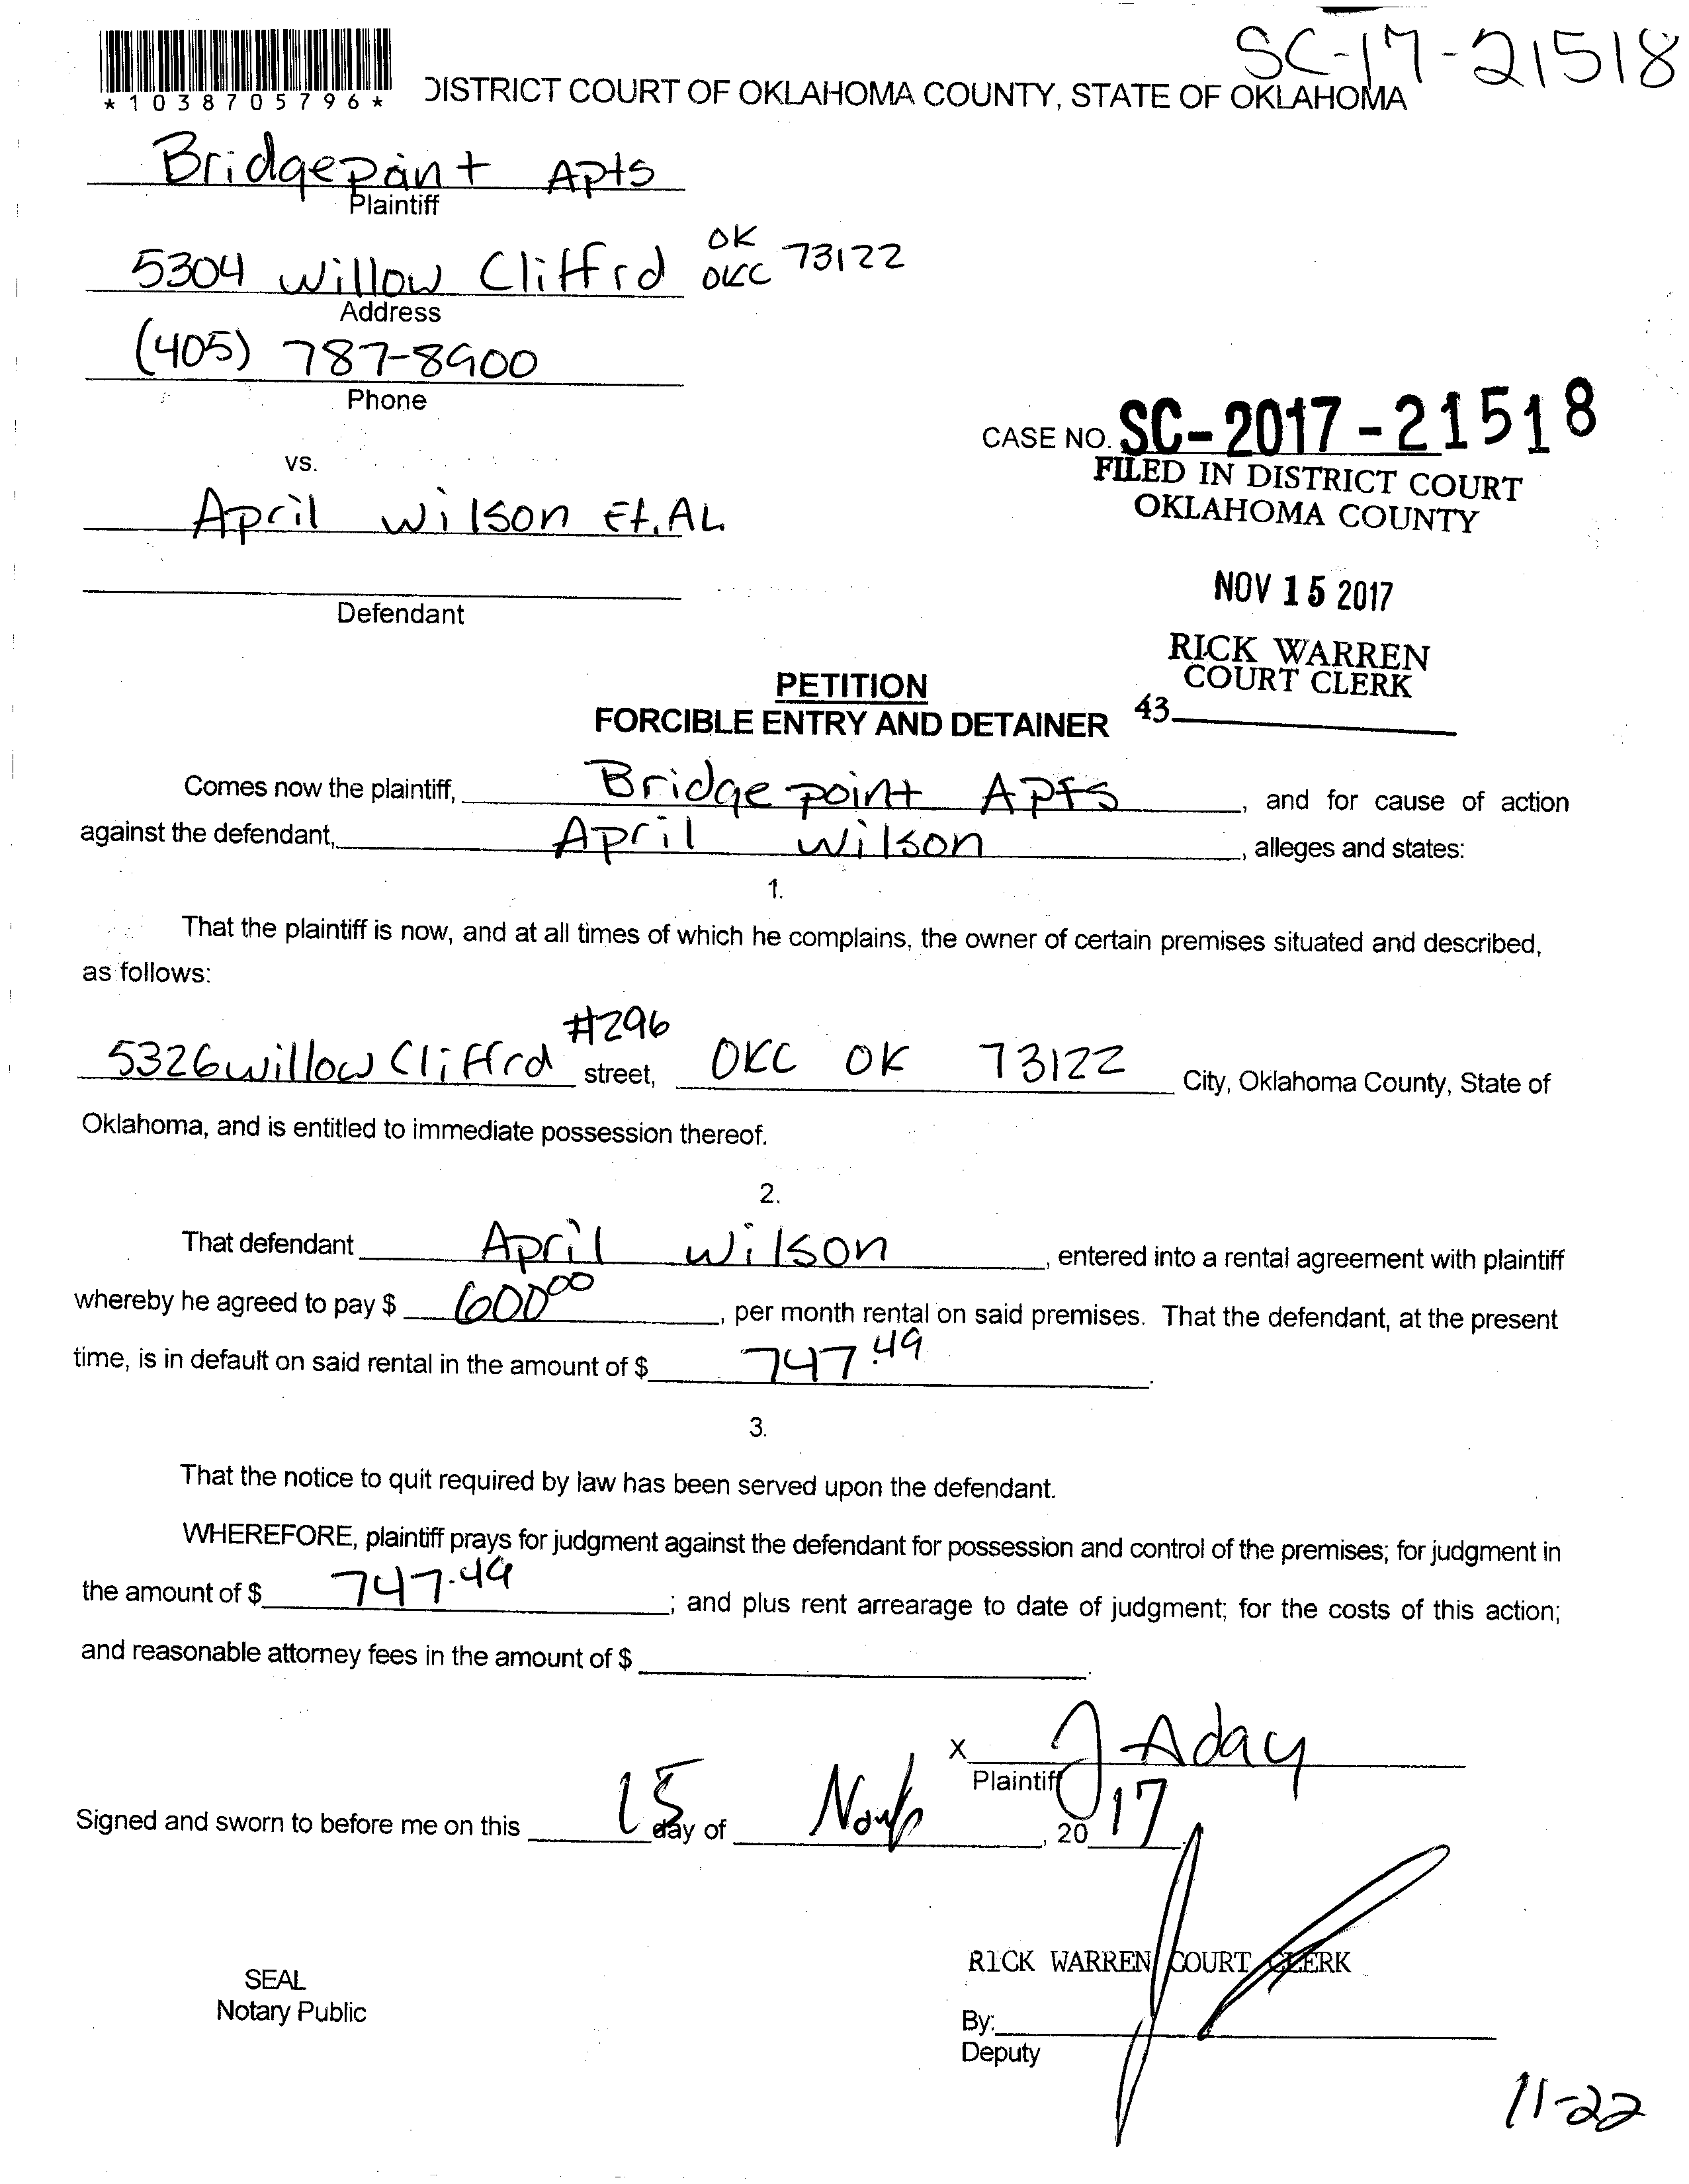 SC-17-21518
*1038705796*
DISTRICT COURT OF OKLAHOMA COUNTY, STATE OF OKLAHOMA
Bridgepoint Apts
Plaintiff
OK
5304 Willow Cliff rd OKC 73122
Address
(405) 787-8900
Phone
CASE NO. SC-2017-21518
FILED IN DISTRICT COURT
OKLAHOMA COUNTY
vs.
April Wilson Et.AL
NOV 15 2017
Defendant
RICK WARREN
COURT CLERK
43
PETITION
FORCIBLE ENTRY AND DETAINER
Comes now the plaintiff, Bridgepoint APTS, and for cause of action
against the defendant, April Wilson, alleges and states:
1.
That the plaintiff is now, and at all times of which he complains, the owner of certain premises situated and described,
as follows:
#296
5326 Willow Cliff rd street, OKC OK 73122 City, Oklahoma County, State of
Oklahoma, and is entitled to immediate possession thereof.
2.
That defendant April Wilson, entered into a rental agreement with plaintiff
whereby he agreed to pay $ 600.00, per month rental on said premises. That the defendant, at the present
time, is in default on said rental in the amount of $ 747.49.
3.
That the notice to quit required by law has been served upon the defendant.
WHEREFORE, plaintiff prays for judgment against the defendant for possession and control of the premises; for judgment in
the amount of $ 747.49; and plus rent arrearage to date of judgment; for the costs of this action;
and reasonable attorney fees in the amount of $ .
X J Aday
Plaintiff
Signed and sworn to before me on this 15 day of Nov, 2017
RICK WARREN COURT CLERK
SEAL
Notary Public
By:
Deputy
11-22